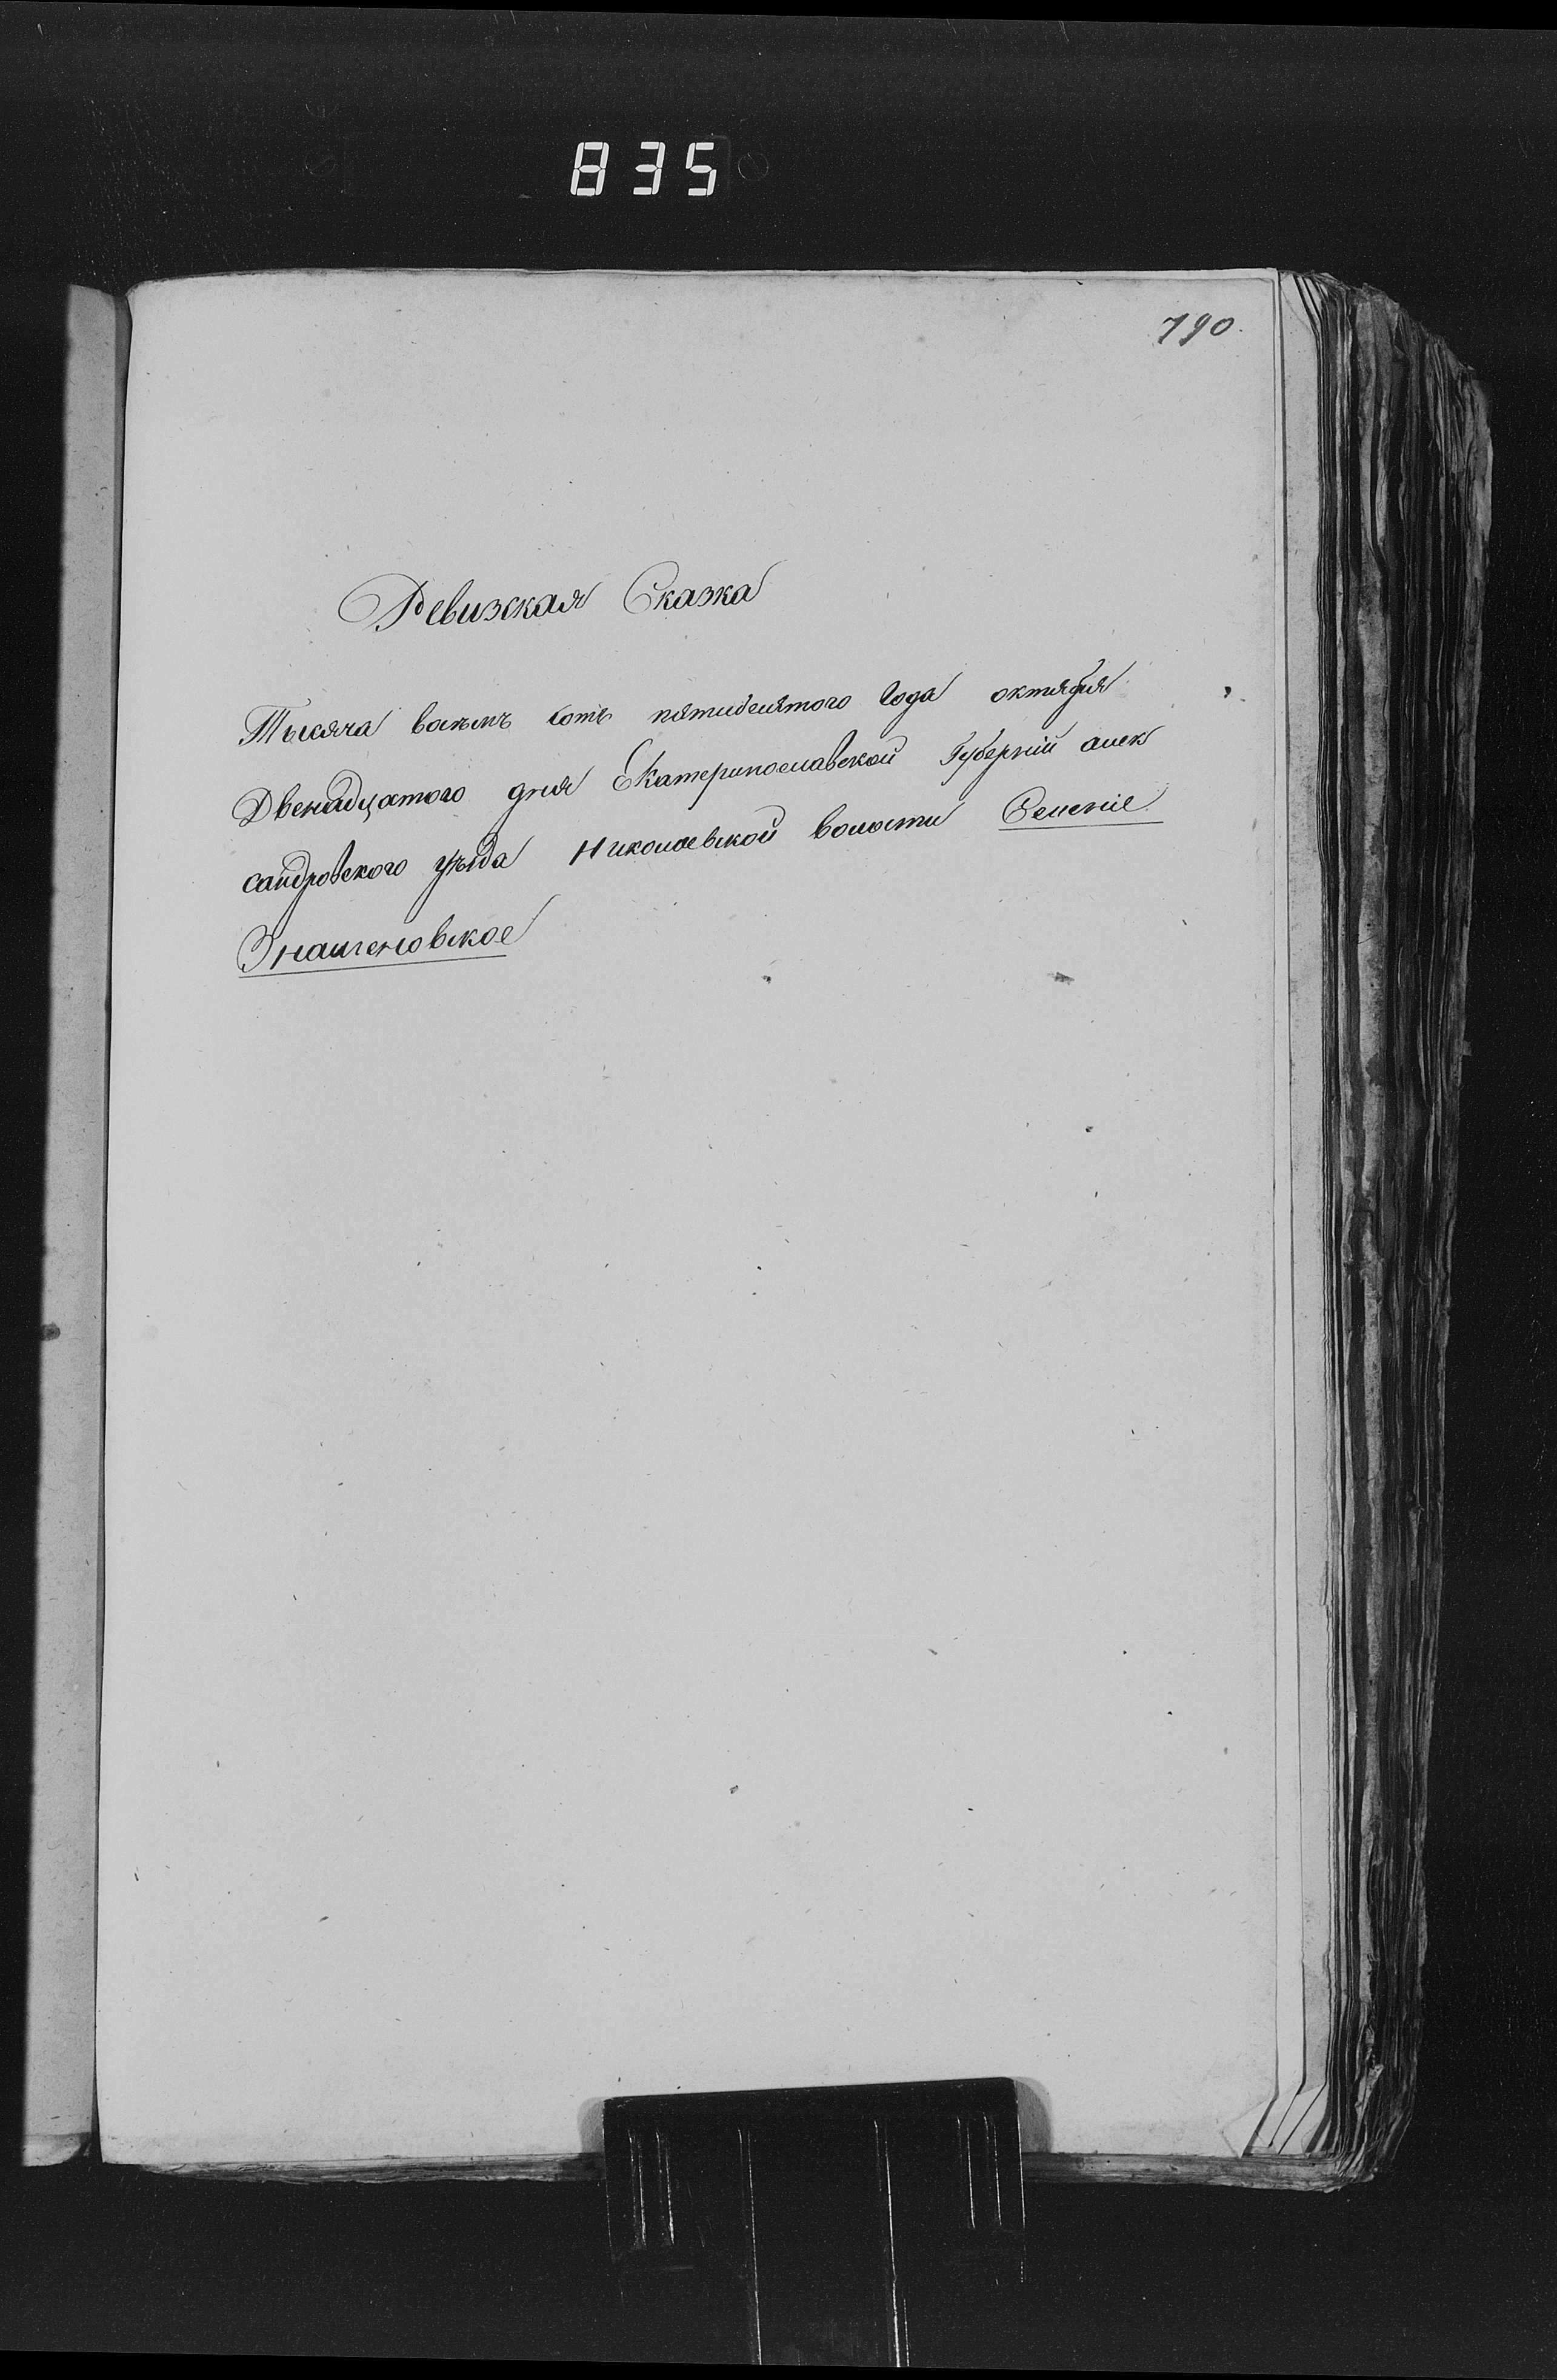 835
790.
Ревизская Сказка
Тысяча восемь сотъ пятидесятого Года октября
Двенадцатого дня Екатеринославской Губерніи алек
сандровского уѣзда Николаевской волости Селеніе
Знаменовское